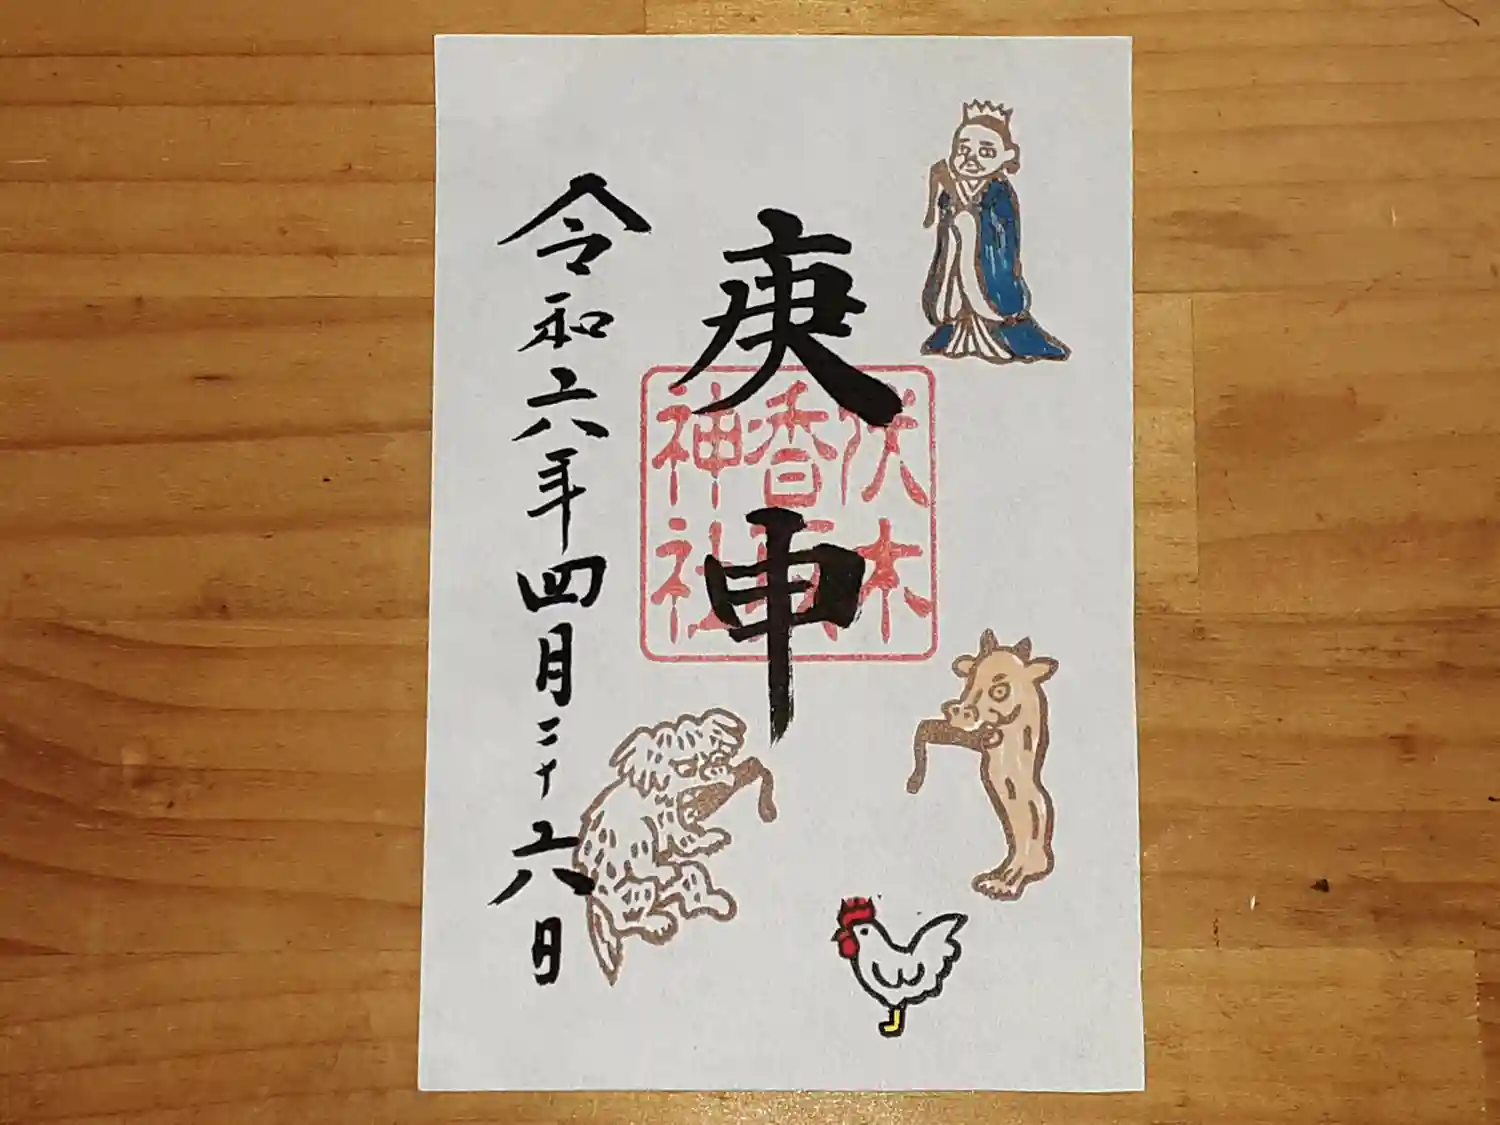 庚申
伏木
香取
神社
令和六年四月二十六日